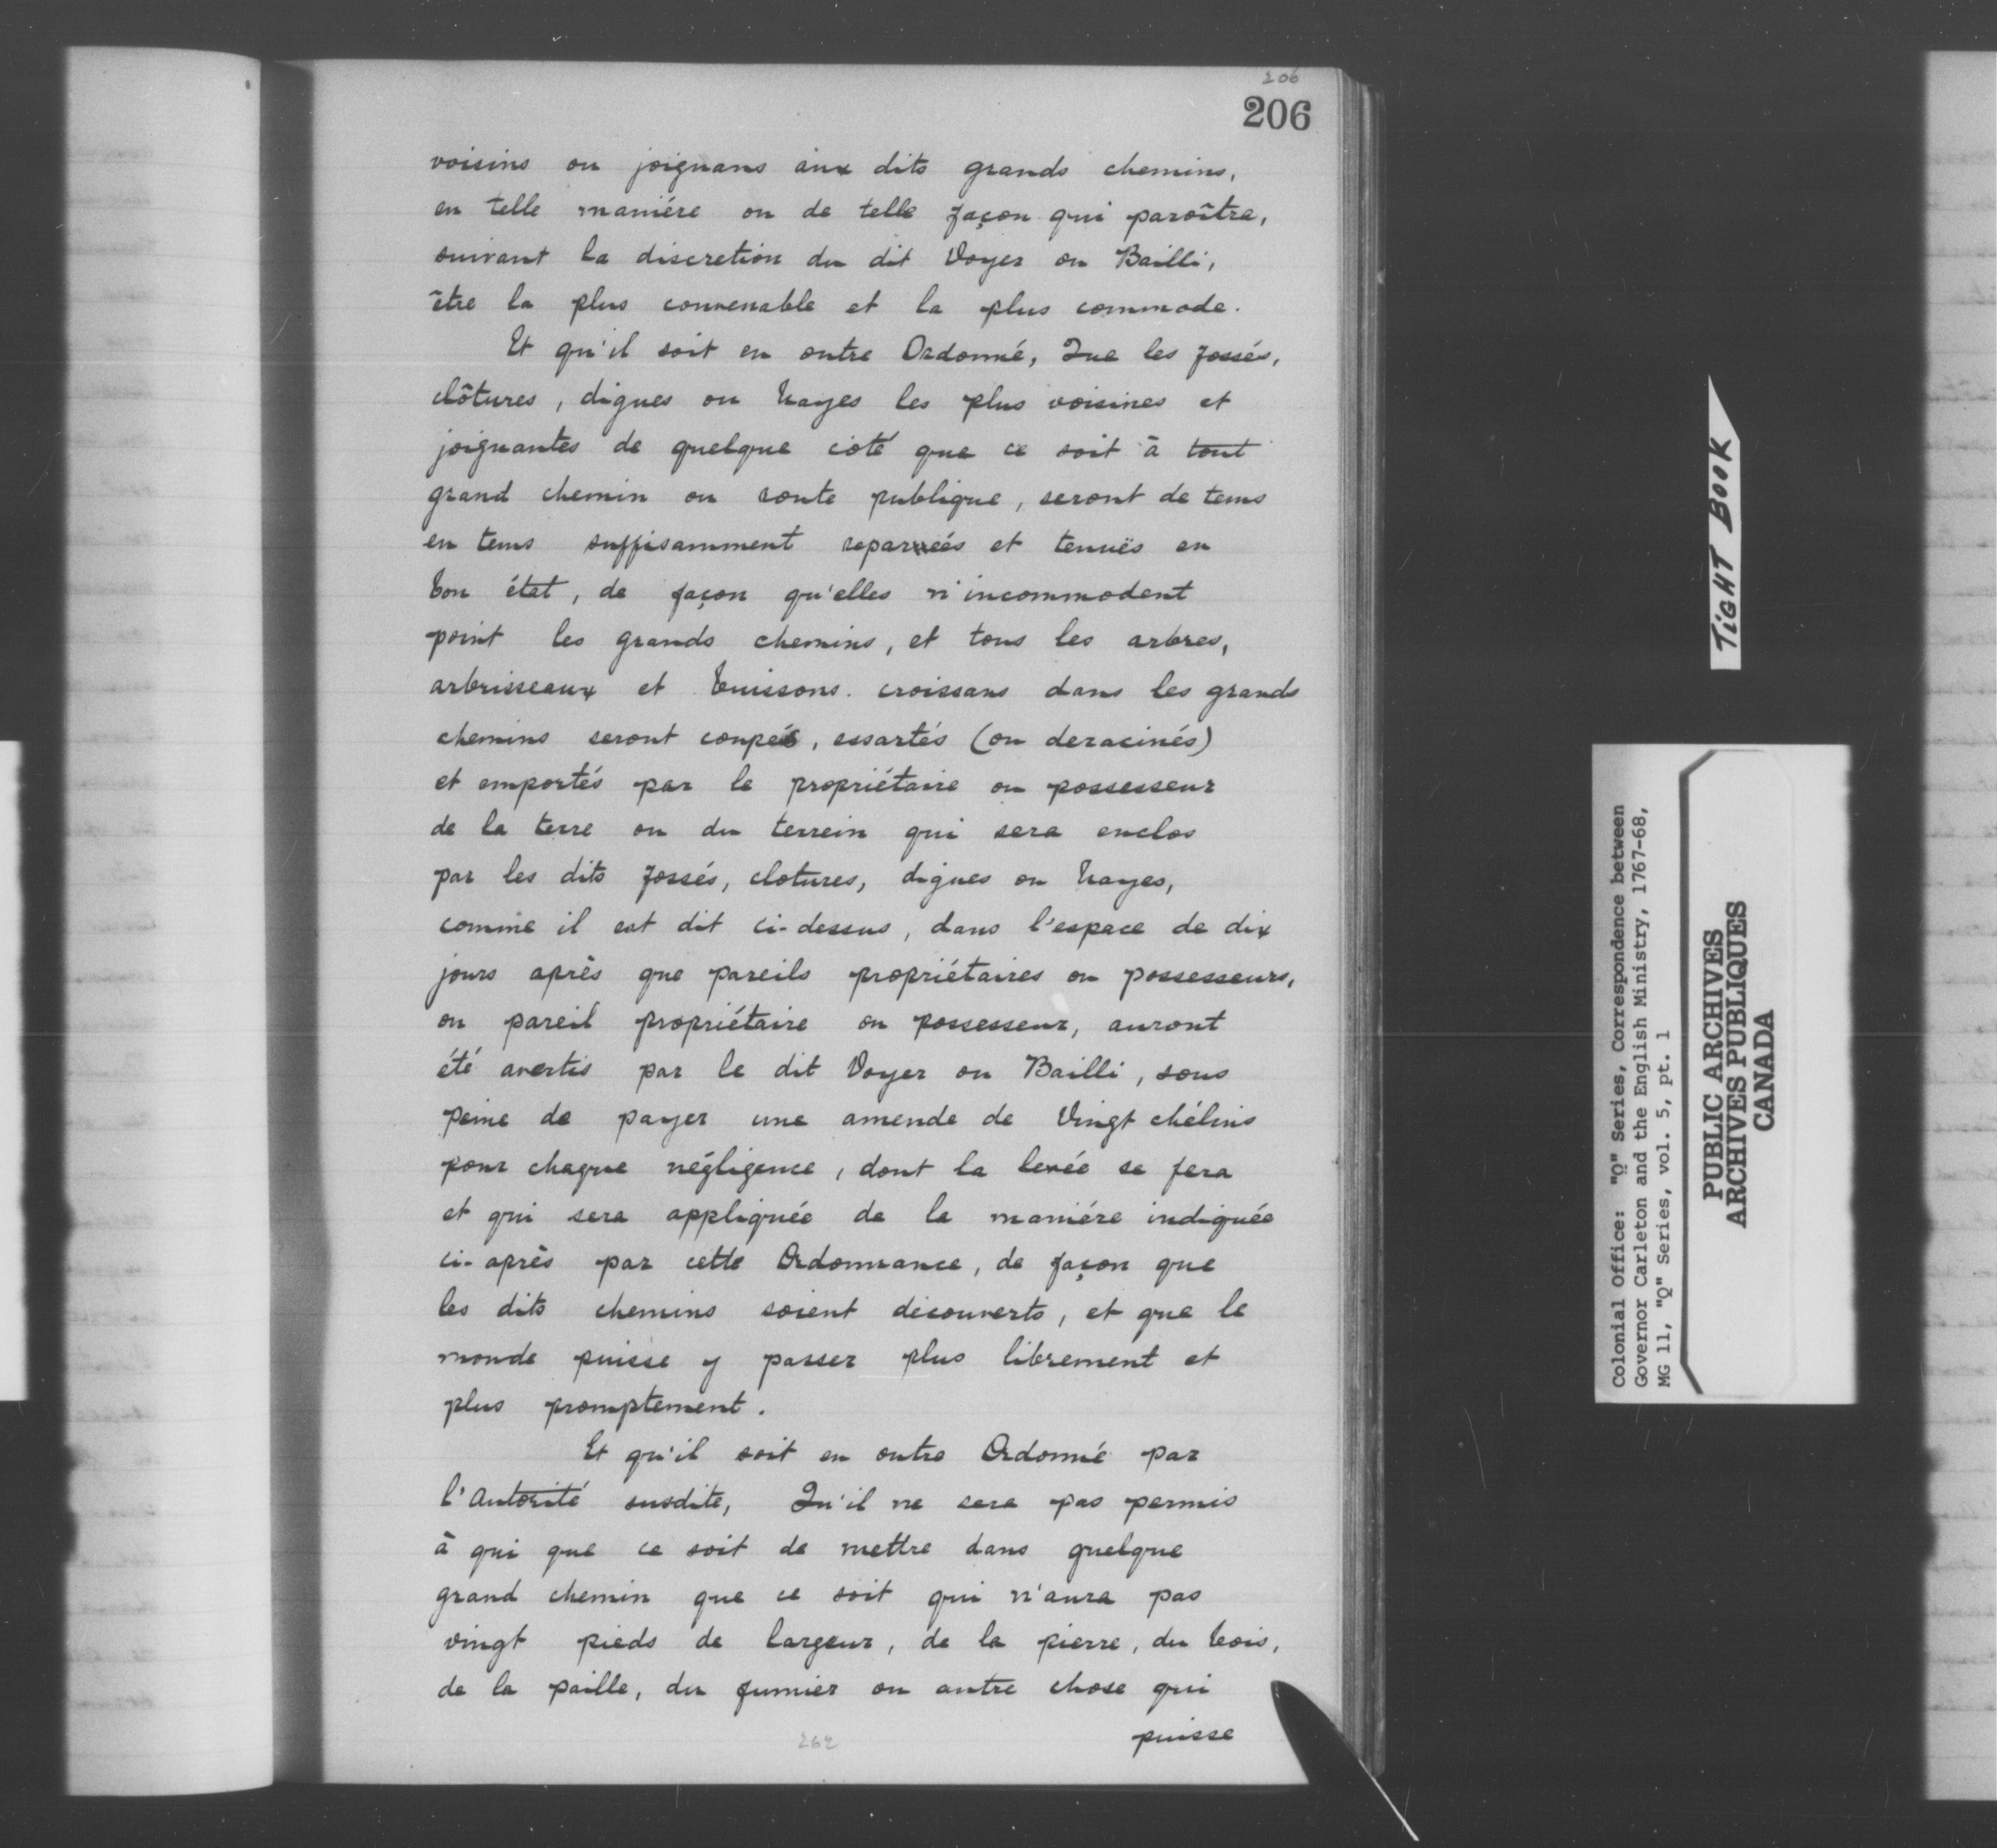 206
206
voisins ou joignans aux dits grands chemins,
en telle maniére ou de telle façon qui paroître,
suivant la discretion du dit Voyer ou Bailli,
être la plus convenable et la plus commode.
Et qu'il soit en outre Ordonné, Que les fossés,
clôtures, digues ou hayes les plus voisines et
joignantes de quelque coté que ce soit à tout
grand chemin ou route publique, seront de tems
en tems suffisamment reparéés et tenuës en
bon état, de façon qu'elles n'incommodent
point les grands chemins, et tous les arbres,
arbrisseaux et buissons croissans dans les grands
chemins seront coupés, essartés (ou deracinés)
et emportés par le propriétaire ou possesseur
de la terre ou du terrein qui sera enclos
par les dits fossés, clotures, digues ou hayes,
comme il est dit ci-dessus, dans l'espace de dix
jours après que pareils propriétaires ou possesseurs,
ou pareil propriétaire ou possesseur, auront
été avertis par le dit Voyer ou Bailli, sous
peine de payer une amende de Vingt chélins
pour chaque négligence, dont la levée se fera
et qui sera appliquée de la maniére indiquée
ci-après par cette Ordonnance, de façon que
les dits chemins soient découverts, et que le
monde puisse y passer plus librement et
plus promptement.
Et qu'il soit en outre Ordonné par
l'Autorité susdite, Qu'il ne sera pas permis
à qui que ce soit de mettre dans quelque
grand chemin que ce soit qui n'aura pas
vingt pieds de largeur, de la pierre, du bois,
de la paille, du fumier ou autre chose qui
puisse
262
TIGHT BOOK
Colonial Office: "Q" Series, Correspondence between
Governor Carleton and the English Ministry, 1767-68,
MG 11, "Q" Series, vol. 5, pt. 1
PUBLIC ARCHIVES
ARCHIVES PUBLIQUES
CANADA